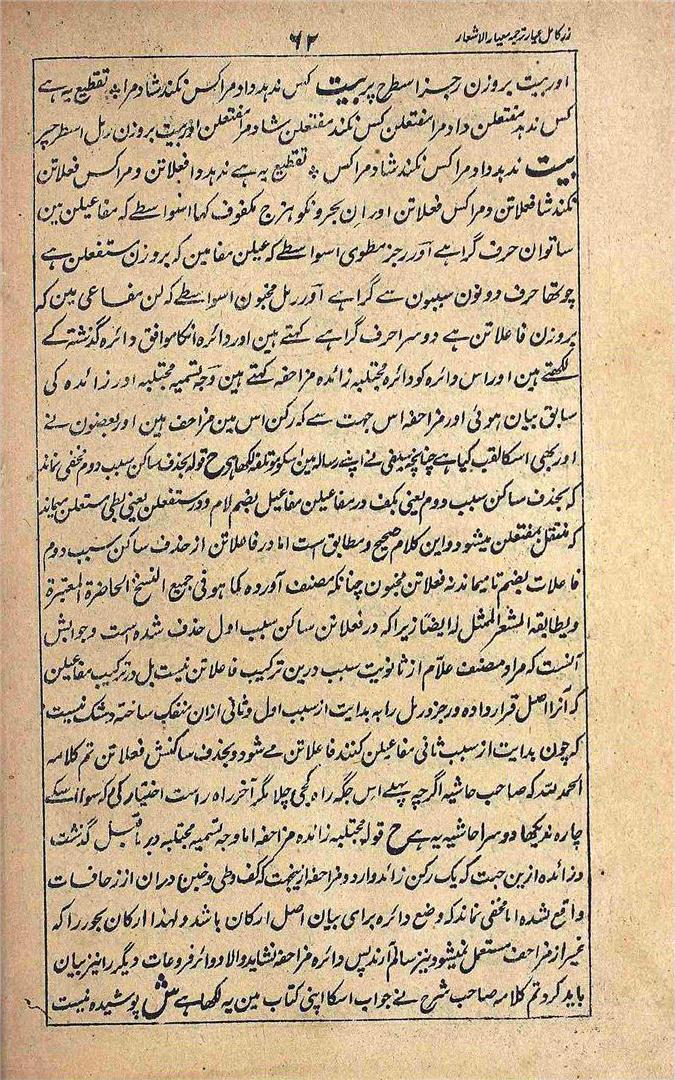 زر کامل عیار ترجمہ معیار الاشعار
٦٢
اور بیت بروزن رجز اسطرح پر بیت کس ندہد داد مرا کس نکند شاد مرا٭ تقطیع یہ ہے
کس ندہد مفتعلن داد مرا مفتعلن کس نکند مفتعلن شاد مرا مفتعلن اور بیت بروزن رمل اسطرحپر
بیت ندہد داد مرا کس نکند شاد مرا کس ٭ تقطیع یہ ہے ندہد دا فعلاتن و مرا کس فعلاتن
نکند شا فعلاتن و مرا کس فعلاتن اور ان بحرونکو ہزج مکفوف کہا اسواسطے کہ مفاعیلن مین
ساتوان حرف گرا ہے اور رجز مطوی اسواسطے کہ عیلن مفا مین کہ بروزن مستفعلن ہے
چوتھا حرف دونون سببون سے گرا ہے اور رمل مخبون اسواسطے کہ لن مفاعی مین کہ
بروزن فاعلاتن ہے دوسرا حرف گرا ہے کہتے ہین اور دائرہ انکا موافق دائرہ گذشتہ کے
لکھتے ہین اور اس دائرہ کو دائرہ مجتلبہ زائدہ مزاحفہ کہتے ہین وجہ تسمیہ مجتلبہ اور زائدہ کی
سابق بیان ہوئی اور مزاحفہ اس جہت سے کہ رکن اس مین مزاحف ہین اور بعضون نے
اور بھی اسکا لقب کیا ہے چنانچہ سیفی نے اپنے رسالہ مین اسکو موتلفہ لکھا ہی ح قولہ بحذف ساکن سبب دوم مخفی نماند
کہ بحذف ساکن سبب دوم یعنی بکف در مفاعیلن مفاعیل بضم لام و در مستفعلن یعنی بطی مستعلن میماند
کہ منتقل بمفتعلن میشود و این کلام صحیح و مطابق ست اما در فاعلاتن از حذف ساکن سبب دوم
فاعلات بضم تا میماند نہ فعلاتن مخبون چنانکہ مصنف آوردہ کما ہو فی جمیع النسخ الحاضرۃ المعتبرۃ
و یطابقہ الشعر الممثل لہ ایضًا زیرا کہ در فعلاتن ساکن سبب اول حذف شدہ است و جوابش
آنست کہ مراد مصنف علام از ثانویت سبب درین ترکیب فاعلاتن نیست بل در ترکیب مفاعیلن
کہ آنرا اصل قرار دادہ و رجز و رمل را بہ بدایت از سبب اول و ثانی ازان منفک ساختہ و شک نیست
کہ چون بدایت از سبب ثانی مفاعیلن کنند فاعلاتن مے شود و بحذف ساکنش فعلاتن تم کلامہ
الحمد للہ کہ صاحب حاشیہ اگرچہ پہلے اس جگہ راہ کجی چلا مگر آخر راہ راست اختیار کی کہ سوا اسکے
چارہ ندیکھا دوسرا حاشیہ یہ ہے ح قولہ مجتلبہ زائدہ مزاحفہ اما وجہ تسمیہ مجتلبہ در ماقبل گذشت
و زائدہ ازین جہت کہ یک رکن زائد دارد و مزاحفہ ازینجہت کہ کف و طی و خبن دران از زحافات
واقع شدہ اما مخفی نماند کہ وضع دائرہ برای بیان اصل ارکان باشد و لہذا ارکان بحور را کہ
غیر از مزاحف مستعمل نمیشود نیز سالم آرند پس دائرہ مزاحفہ نشاید و الا دوائر فروعات دیگر را نیز بیان
باید کرد تم کلامہ صاحب شرح نے جواب اسکا اپنی کتاب مین یہ لکھا ہے ش پوشیدہ نیست